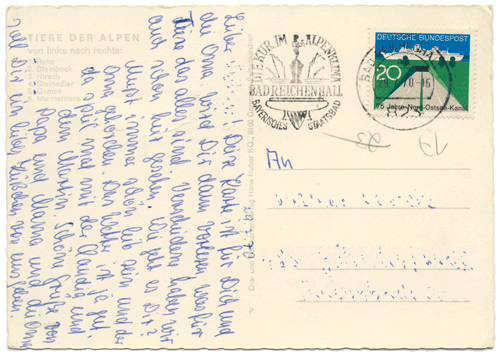 TIERE DER ALPEN
von links nach rechts:
Rehe
Steinbock
Hirsch
Steinadler
Murmeltiere
Liebe ! Diese Karte ist für Dich und
die Oma wird Dir dann vorlesen was für
Tiere das alles sind. Verschiedene haben wir
auch schon hier gesehen. Wie geht es Dir?
Musst immer schön lieb sein und der
Oma gehorchen. Das Wetter ist ja gut,
da spiel mal mit der Claudia und
dem Martin. Schöne Grüße von
Papa und Mama und die Oma
soll Dir ein liebes Küßchen von uns geben.
DIE KUR IM ALPENKLIMA
BAD REICHENHALL
BAYERISCHES STAATSBAD
DEUTSCHE BUNDESPOST
20
75 Jahre Nord-Ostsee-Kanal
823
An